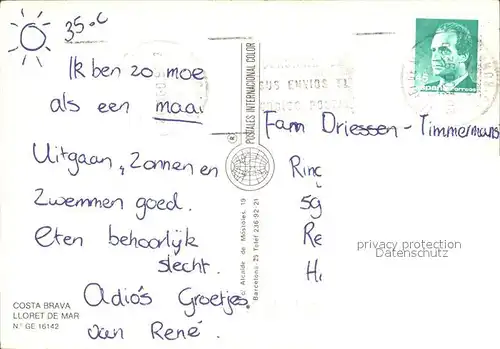 35°C
Ik ben zo moe
als een maai
Uitgaan, Zonnen en
Zwemmen goed.
Eten behoorlijk
slecht.
Adiós Groetjes
van René.
COSTA BRAVA
LLORET DE MAR
N.º GE 16142
POSTALES INTERNACIONAL COLOR
Alcalde de Móstoles, 19
Barcelona-25 Telef 236-92-21
SUS ENVIOS EL
España Correos
Fam Driessen - Timmermans
Rin
59
Re
H
privacy protection
Datenschutz